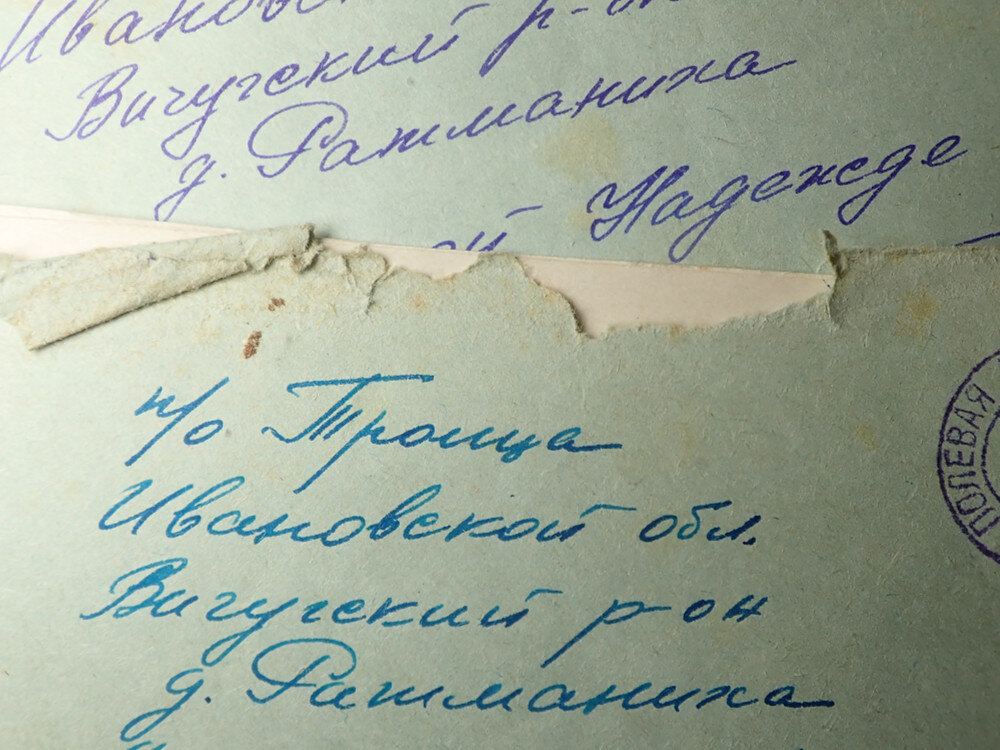 Вичугский р-он
д. Ратманиха
ой Надежде
п/о Троица
Ивановской обл.
Вичугский р-он
д. Ратманиха
ПОЛЕВАЯ